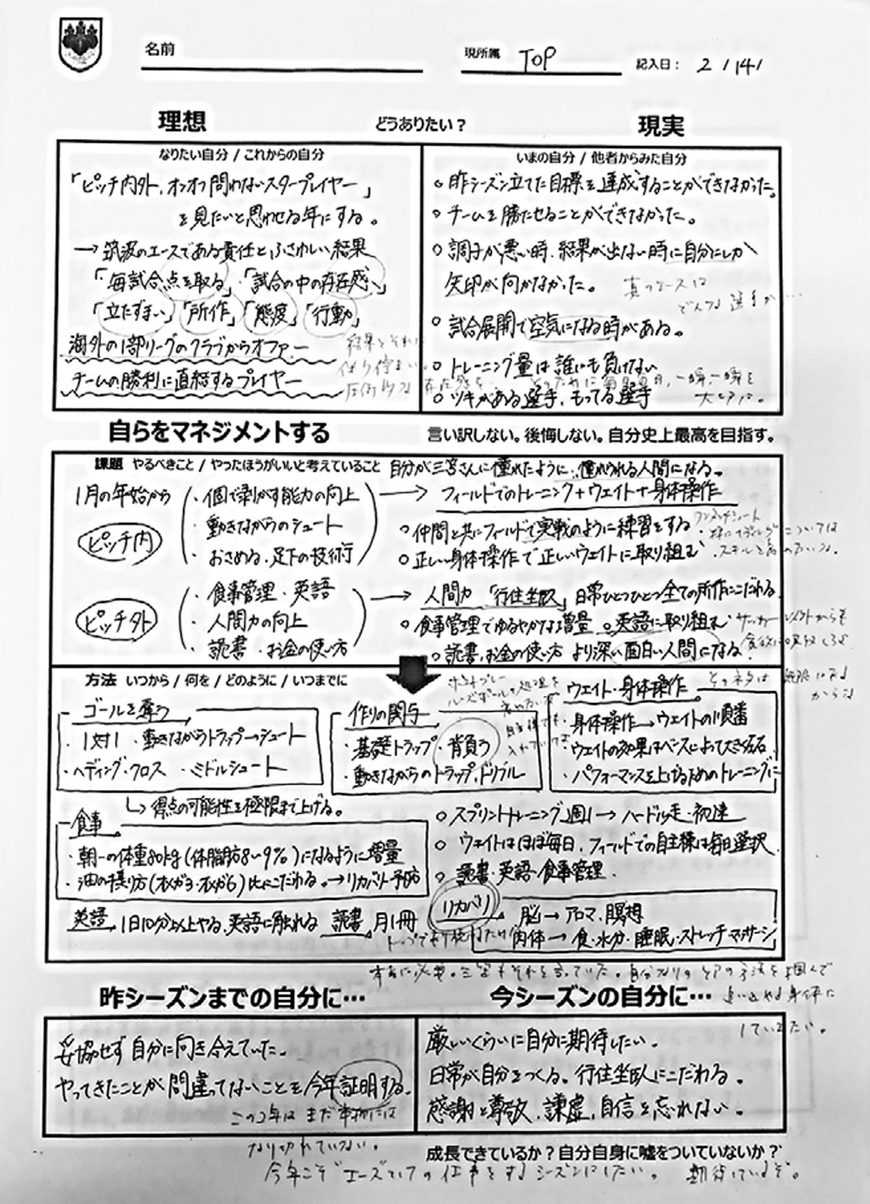 名前
現所属 TOP
記入日： 2 / 14 /
理想
どうありたい？
現実
なりたい自分 / これからの自分
「ピッチ内外、オンオフ問わないスタープレイヤー」
を見たいと思わせる年にする。
→ 筑波のエースである責任とふさわしい結果
「毎試合点を取る」「試合の中の存在感」
「立たずまい」「所作」「態度」「行動」
海外の1部リーグのクラブからオファー
チームの勝利に直結するプレイヤー
いまの自分 / 他者からみた自分
○ 昨シーズン立てた目標を達成することができなかった。
○ チームを勝たせることができなかった。
○ 調子が悪い時、結果が出ない時に自分にしか
矢印が向かなかった。
真のエースは
どんな選手か…
○ 試合展開で空気になる時がある。
○ トレーニング量は誰にも負けない
○ ツキがある選手、もってる選手
自らをマネジメントする
言い訳しない。後悔しない。自分史上最高を目指す。
課題 やるべきこと / やったほうがいいと考えていること
自分が三笘さんに憧れたように、憧れられる人間になる。
1月の年始から
ピッチ内
・個で剥がす能力の向上
・動きながらのシュート
・おさめる、足下の技術
→ フィールドでのトレーニング＋ウェイト＋身体操作
○ 仲間と共にフィールドで実戦のように練習をする
○ 正しい身体操作で正しいウェイトに取り組む
ピッチ外
・食事管理・英語
・人間力の向上
・読書・お金の使い方
→ 人間力 「行住坐臥」 日常ひとつひとつ全ての所作にこだわる
○ 食事管理でゆるやかな増量 ○英語に取り組む
○ 読書、お金の使い方 より深い面白い人間になる
方法 いつから / 何を / どのように / いつまでに
ゴールを奪う
・1対1 ・動きながらトラップ→シュート
・ヘディング・クロス ・ミドルシュート
↳ 得点の可能性を極限まで上げる。
作りの関与
・基礎トラップ・背負う
・動きながらのトラップ、ドリブル
ウェイト・身体操作
・身体操作→ウェイトの順番
・ウェイトの効果はベースによって大きくなる
・パフォーマンスを上げるためのトレーニングに
食事
・朝一の体重80kg(体脂肪8〜9%)になるように増量
・油の摂り方(オメガ3・オメガ6)比にこだわる。→リカバリー・予防
○ スプリントトレーニング週1 → ハードル走・初速
○ ウェイトはほぼ毎日、フィールドでの自主練は毎日選択
○ 読書・英語・食事管理
英語 1日10分以上やる、英語に触れる 読書 月1冊
リカバリ
脳→アロマ、瞑想
肉体→食・水分・睡眠・ストレッチ マッサージ
昨シーズンまでの自分に…
妥協せず自分に向き合えていた。
やってきたことが間違ってないことを今年証明する。
この2年はまだ本物には
なり切れていない。
今年こそ"エースとしての仕事をするシーズンにしたい。 期待しているぞ。
今シーズンの自分に…
厳しいくらいに自分に期待したい。
日常が自分をつくる。行住坐臥にこだわる。
感謝と尊敬、謙虚、自信を忘れない。
成長できているか？自分自身に嘘をついていないか？